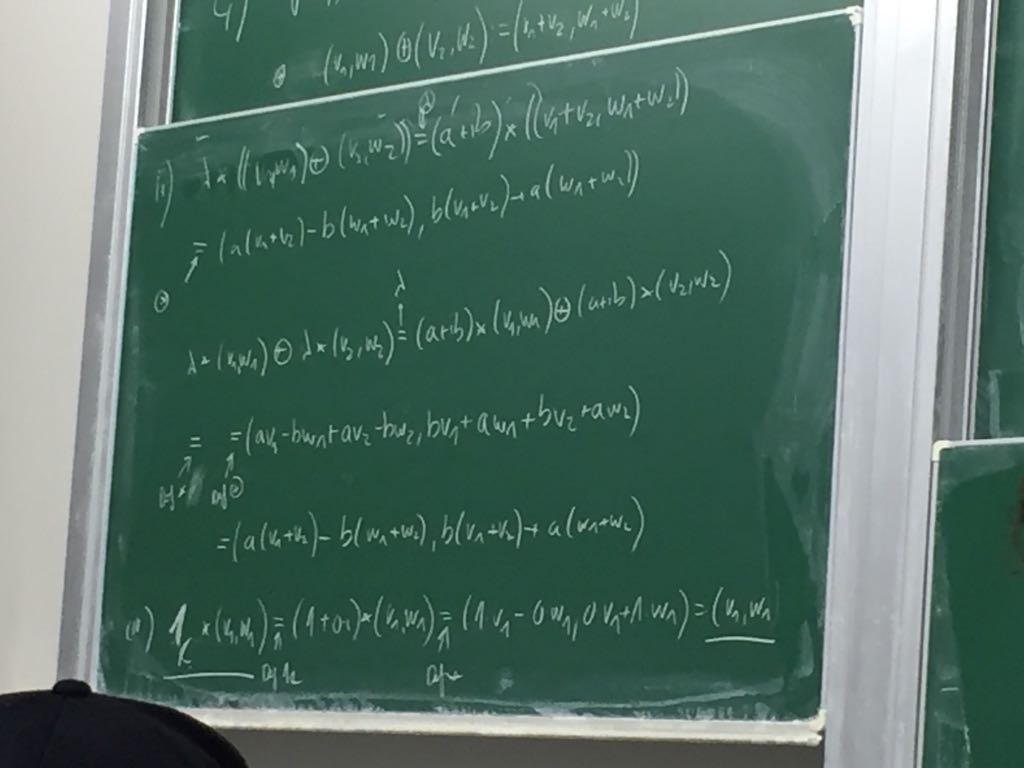 4)
(v₁,w₁) ⊕ (v₂,w₂) := (v₁+v₂, w₁+w₂)
λ
ii) λ * ((v₁,w₁) ⊕ (v₂,w₂)) = (a+ib) * ((v₁+v₂, w₁+w₂))
= (a(v₁+v₂) - b(w₁+w₂), b(v₁+v₂) + a(w₁+w₂))
λ
λ * (v₁,w₁) ⊕ λ * (v₂,w₂) = (a+ib) * (v₁,w₁) ⊕ (a+ib) * (v₂,w₂)
= = (av₁ - bw₁ + av₂ - bw₂, bv₁ + aw₁ + bv₂ + aw₂)
Def * Def ⊕
= (a(v₁+v₂) - b(w₁+w₂), b(v₁+v₂) + a(w₁+w₂)
iii) 1 * (v₁,w₁) = (1+0i) * (v₁,w₁) = (1v₁ - 0w₁, 0v₁ + 1w₁) = (v₁,w₁
Def *